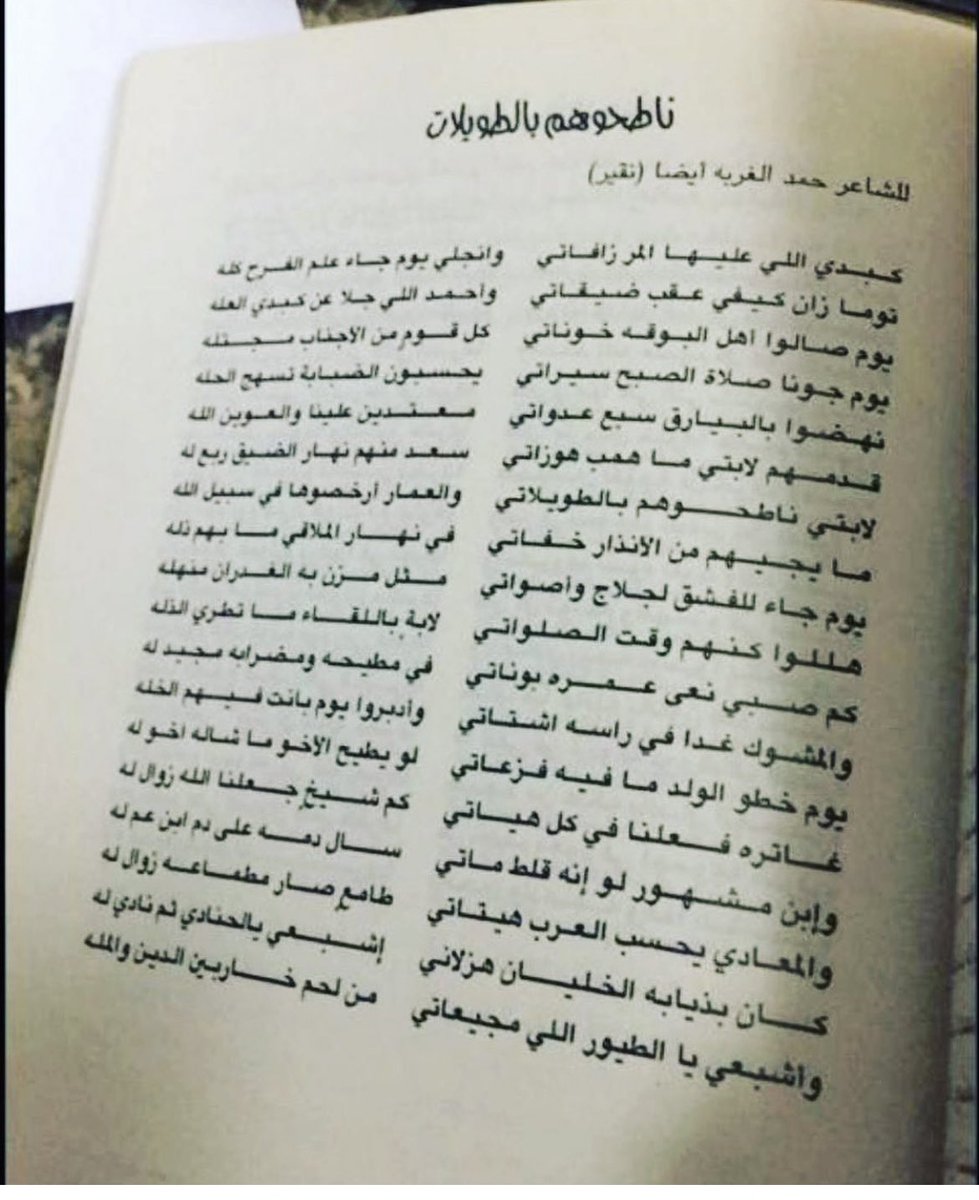 ناطحوهم بالطويلات
للشاعر حمد الغربه أيضا (نقير)
كبدي اللي عليها المر زافاتي وانجلي يوم جاء علم الفرح كله
توما زان كيفي عقب ضيقاتي وأحمد اللي جلا عن كبدي العله
يوم صالوا أهل البوقه خوناتي كل قوم من الأجناب مجتله
يوم جونا صلاة الصبح سيراتي يحسبون الضبابة تسهج الحله
نهضوا بالبيارق سبع عدواتي معتدين علينا والعوين الله
قدمهم لابتي ما همب هوزاتي سعد منهم نهار الضيق ربع له
لابتي ناطحوهم بالطويلاتي والعمار أرخصوها في سبيل الله
ما يجيهم من الأنذار خفاتي في نهار الملاقي ما بهم ذله
يوم جاء للفشق لجلاج وأصواتي مثل مزن به الغدران منهله
هللوا كنهم وقت الصلواتي لابةٍ باللقاء ما تطري الذله
كم صبي نعى عمره بوناتي في مطيحه ومضرابه مجبد له
والمشوك غدا في راسه اشتاتي وأدبروا يوم بانت فيهم الخله
يوم خطو الولد ما فيه فزعاتي لو يطيح الأخو ما شاله أخو له
غاتره فعلنا في كل هياتي كم شيخٍ جعلنا الله زوال له
وإبن مشهور لو إنه قلط ماتي سال دمه على دم ابن عم له
والمعادي يحسب العرب هيتاتي طامعٍ صار مطماعه زوال له
كان بذيابه الخليان هزلاني إشبعي يالحنادي ثم نادي له
وأشبعي يا الطيور اللي مجيعاتي من لحم خاربين الدين والمله